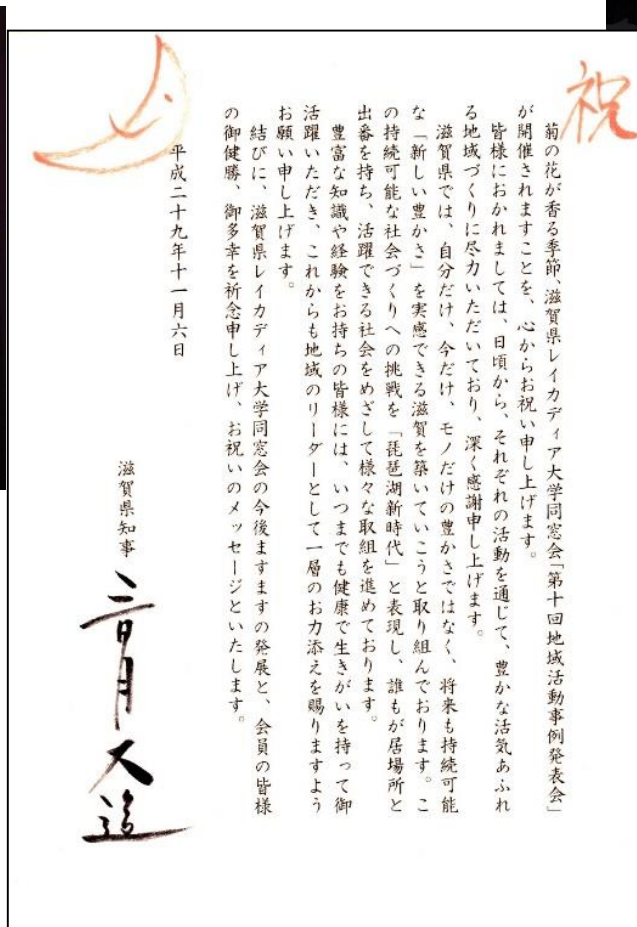 祝
菊の花が香る季節、滋賀県レイカディア大学同窓会「第十回地域活動事例発表会」
が開催されますことを、心からお祝い申し上げます。
皆様におかれましては、日頃から、それぞれの活動を通じて、豊かな活気あふれ
る地域づくりに尽力いただいており、深く感謝申し上げます。
滋賀県では、自分だけ、今だけ、モノだけの豊かさではなく、将来も持続可能
な「新しい豊かさ」を実感できる滋賀を築いていこうと取り組んでおります。こ
の持続可能な社会づくりへの挑戦を「琵琶湖新時代」と表現し、誰もが居場所と
出番を持ち、活躍できる社会をめざして様々な取組を進めております。
豊富な知識や経験をお持ちの皆様には、いつまでも健康で生きがいを持って御
活躍いただき、これからも地域のリーダーとして一層のお力添えを賜りますよう
お願い申し上げます。
結びに、滋賀県レイカディア大学同窓会の今後ますますの発展と、会員の皆様
の御健勝、御多幸を祈念申し上げ、お祝いのメッセージといたします。
平成二十九年十一月六日
滋賀県知事 三日月大造